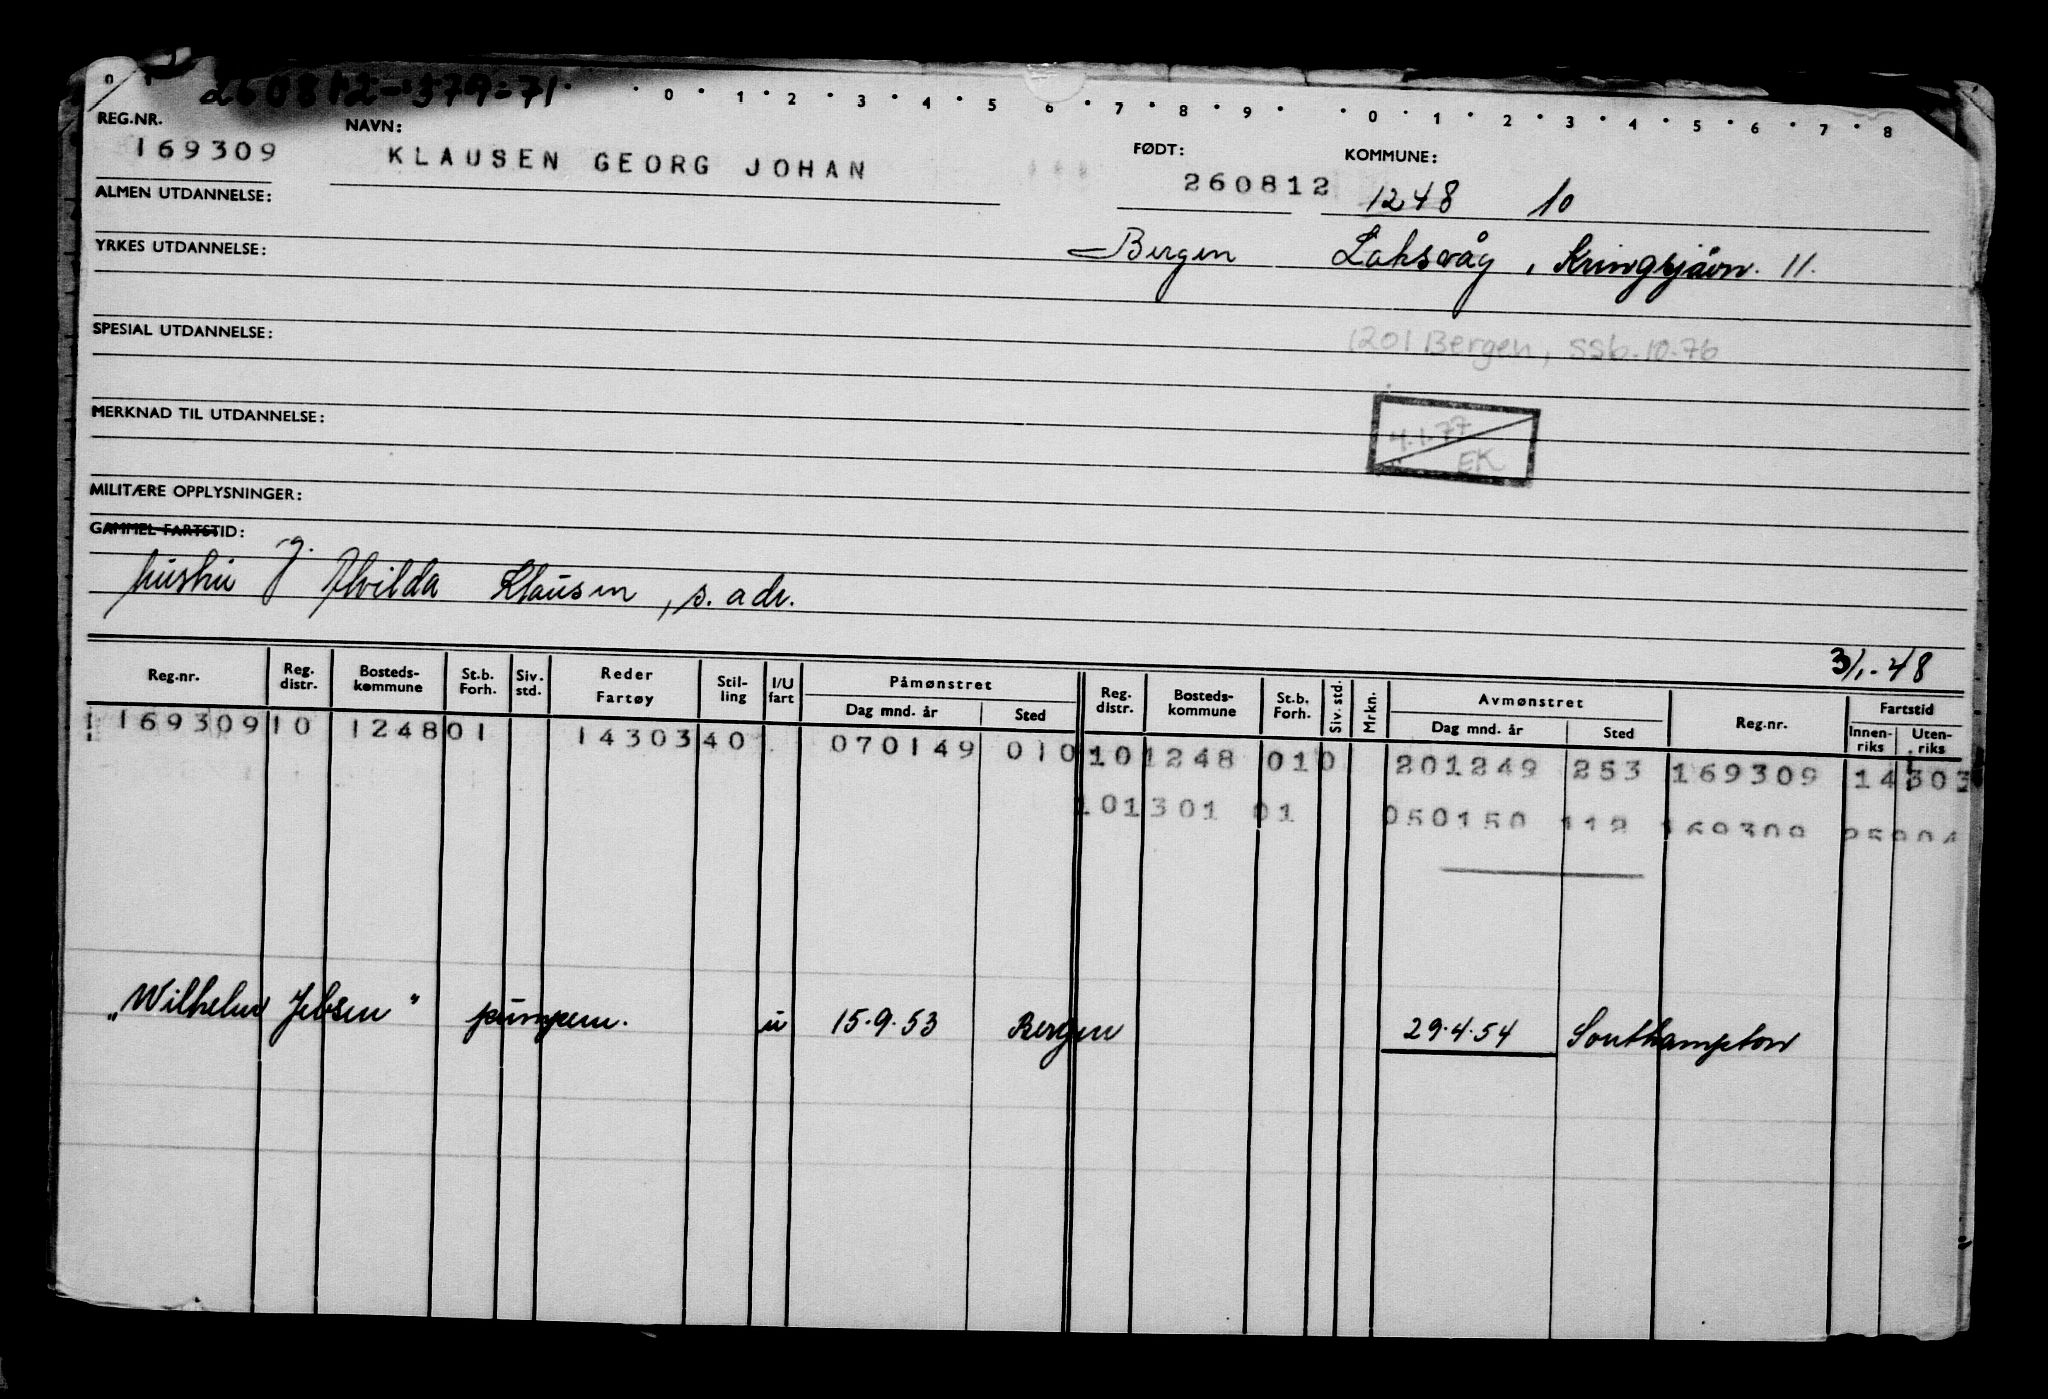 0 1 260812-379=71 0 1 2 3 4 5 6 7 8 9 0 1 2 3 4 5 6 7 8
REG.NR. NAVN: FØDT: KOMMUNE:
169309 KLAUSEN GEORG JOHAN 260812 1248 10
ALMEN UTDANNELSE:
YRKES UTDANNELSE: Bergen Laksevåg, Kringsjåvn. 11.
SPESIAL UTDANNELSE: 1201 Bergen, ssb. 10.76
MERKNAD TIL UTDANNELSE: 4.1.77
EK
MILITÆRE OPPLYSNINGER:
GAMMEL FARTSTID:
hustru g. Alvilda Klausen, s. adr.
3/1.-48
Reg.nr. Reg. distr. Bosteds-kommune St.b. Forh. Siv. std. Reder Fartøy Stil-ling I/U fart Påmønstret Dag mnd. år Sted Reg. distr. Bosteds-kommune St.b. Forh. Siv. std. Mrkn. Avmønstret Dag mnd. år Sted Reg.nr. Fartstid Innen-riks Uten-riks
169309 10 1248 01 14303 40 070149 010 10 1248 01 0 201249 253 169309 14 303
10 1301 01 050150 112 169309
"Wilhelm Jebsen" pumpem. u 15.9.53 Bergen 29.4.54 Southampton